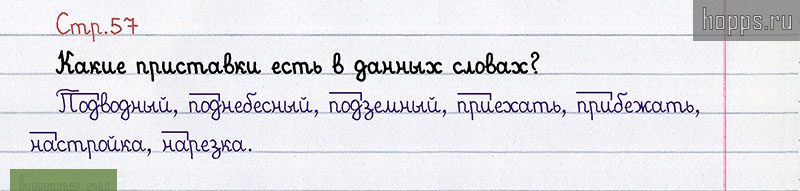 Стр.57
hopps.ru
Какие приставки есть в данных словах?
Подводный, поднебесный, подземный, приехать, прибежать,
настройка, нарезка.
hopps.ru